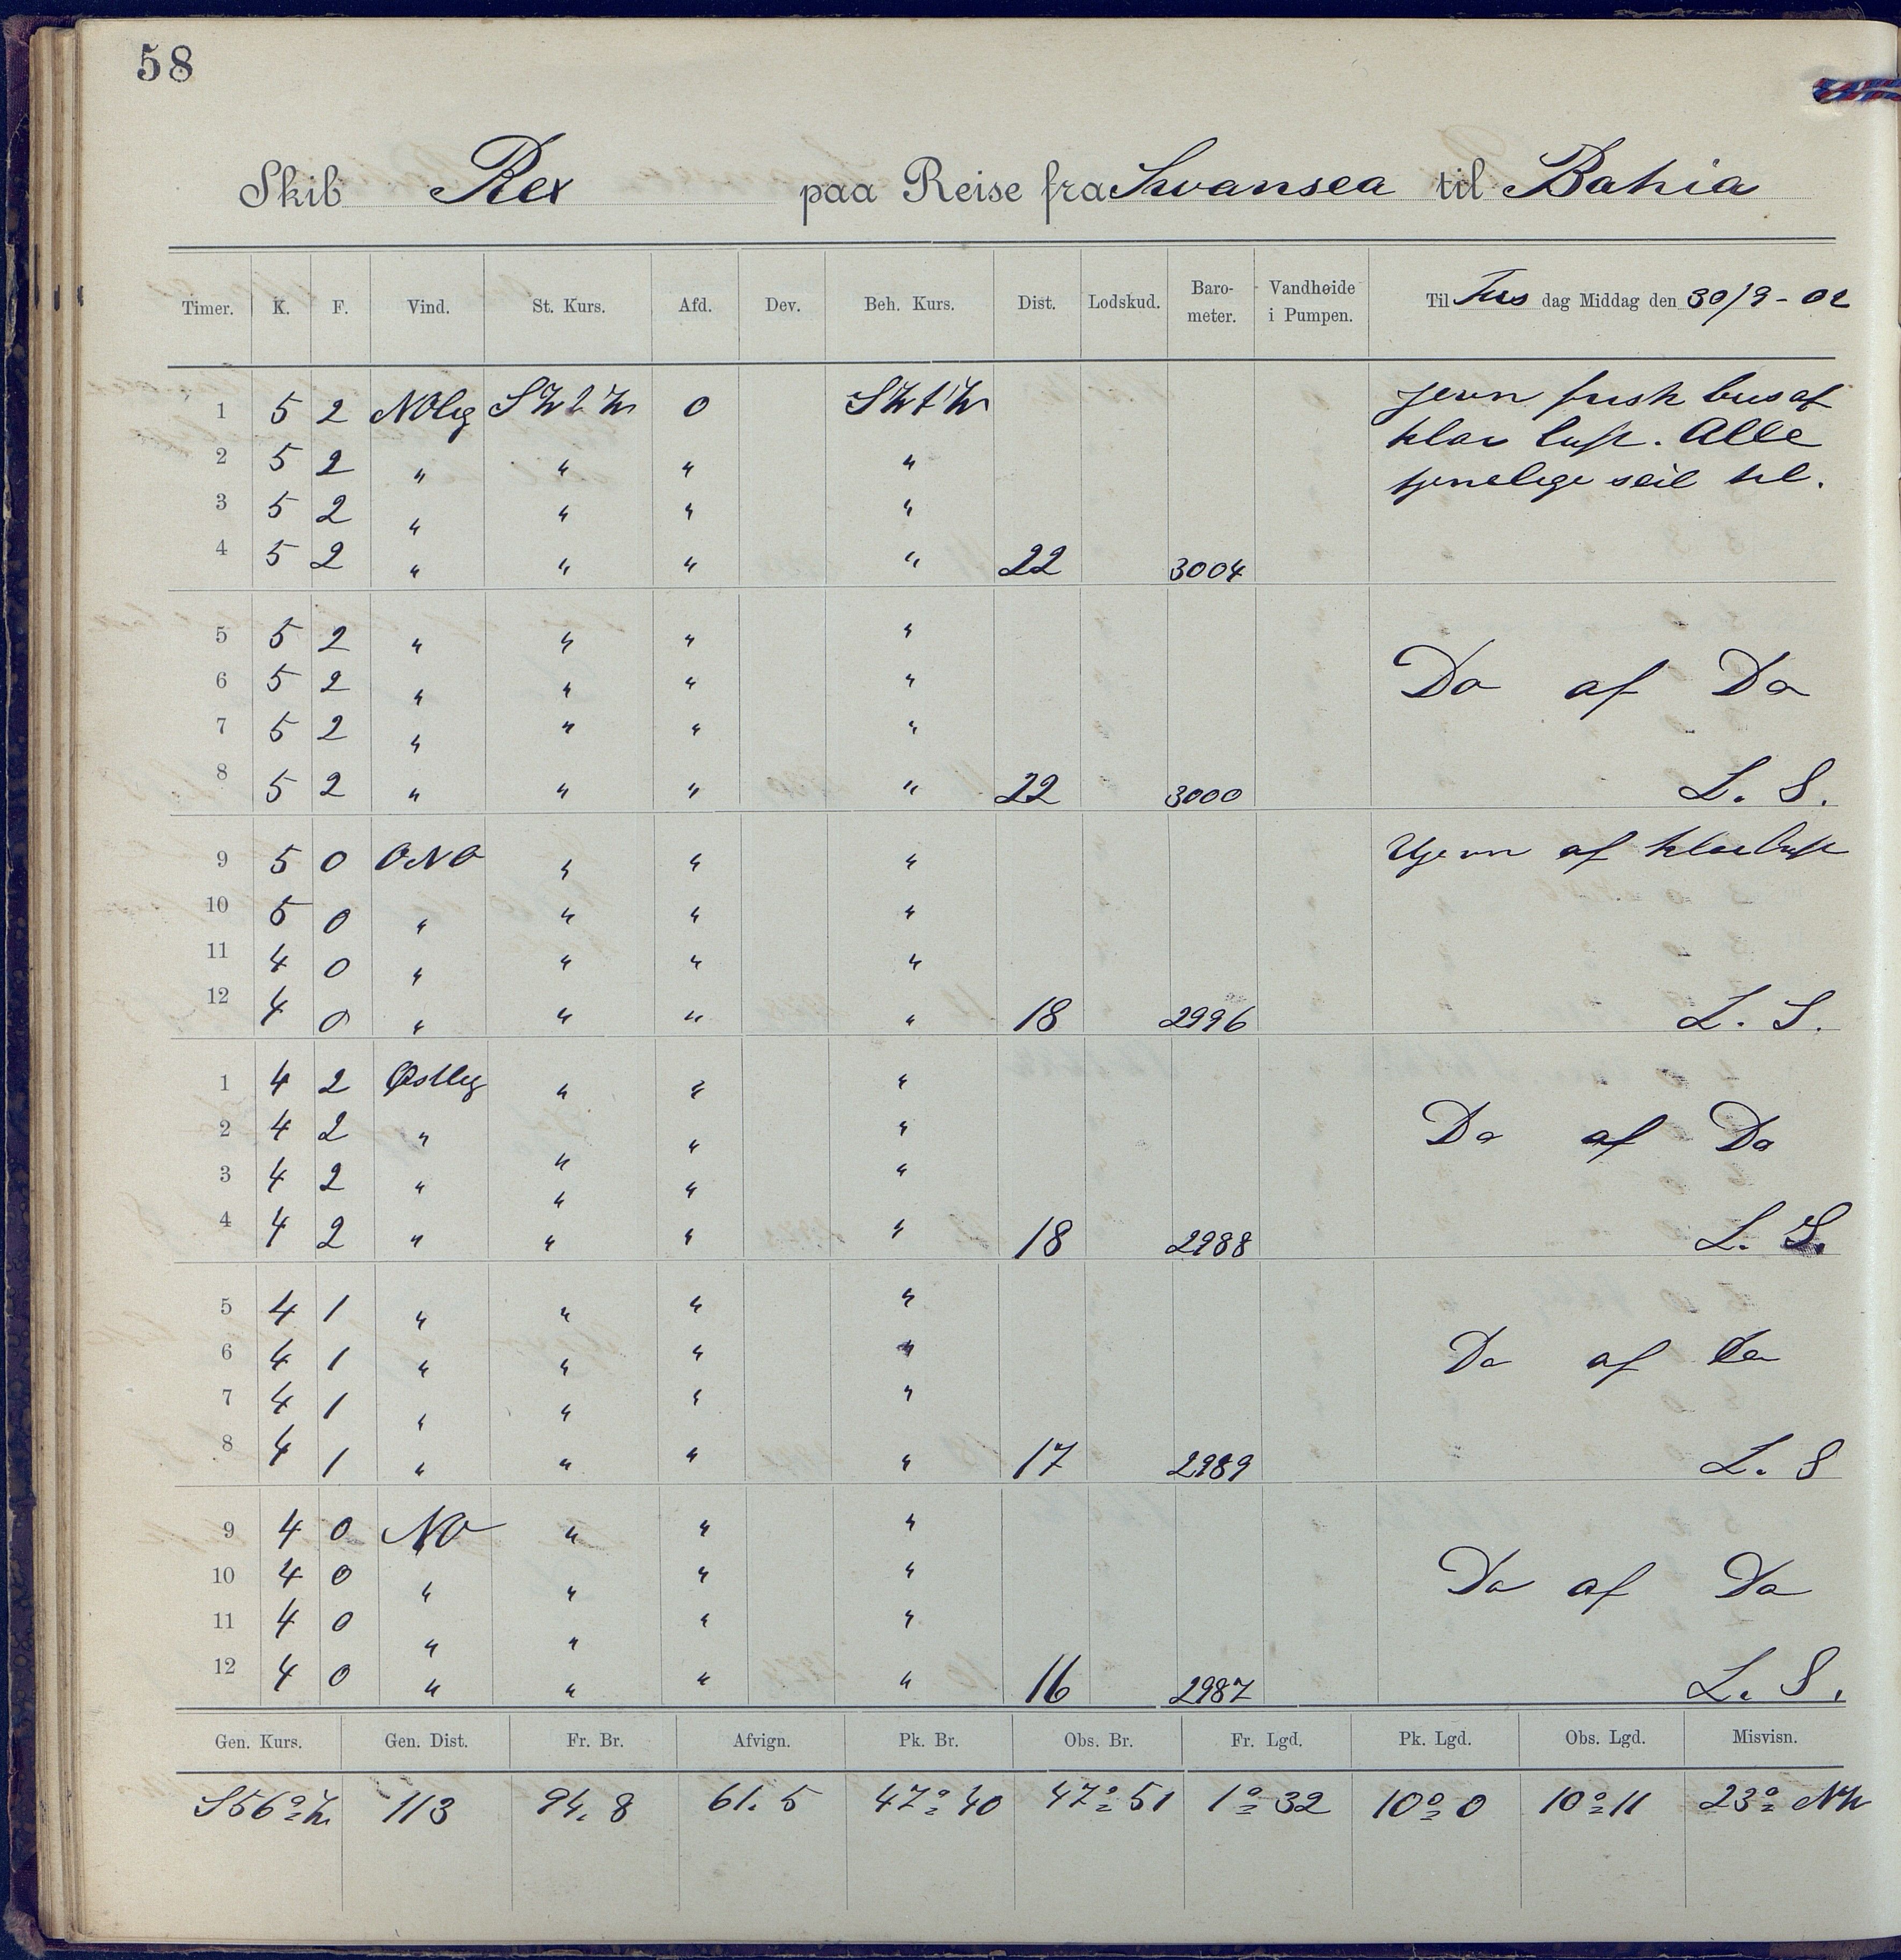 58
Skib Rex paa Reise fra Swansea til Bahia
Timer. K. F. Vind. St. Kurs. Afd. Dev. Beh. Kurs. Dist. Lodskud. Barometer. Vandhøide i Pumpen. Til Tirs dag Middag den 30/9 - 02
1 5 2 NOlig SWtW 0 SWtW Jevn frisk bris af
2 5 2 " " " " klar luft. Alle
3 5 2 " " " " tjenelige seil til.
4 5 2 " " " " 22 3004
5 5 2 " " " "
6 5 2 " " " " Do af Do
7 5 2 " " " "
8 5 2 " " " " 22 3000 L. S.
9 5 0 ONO " " " Ujevn af klar luft
10 5 0 " " " "
11 4 0 " " " "
12 4 0 " " " " 18 2996 L. S.
1 4 2 Østlig " " "
2 4 2 " " " " Do af Do
3 4 2 " " " "
4 4 2 " " " " 18 2988 L. S.
5 4 1 " " " "
6 4 1 " " " " Do af Do
7 4 1 " " " "
8 4 1 " " " " 17 2989 L. S
9 4 0 NO " " "
10 4 0 " " " " Do af Do
11 4 0 " " " "
12 4 0 " " " " 16 2987 L. S.
Gen. Kurs. Gen. Dist. Fr. Br. Afvign. Pk. Br. Obs. Br. Fr. Lgd. Pk. Lgd. Obs. Lgd. Misvisn.
S56°W. 113 94.8 61.5 47° 40 47° 51 1° 32 10° 0 10° 11 23° NW